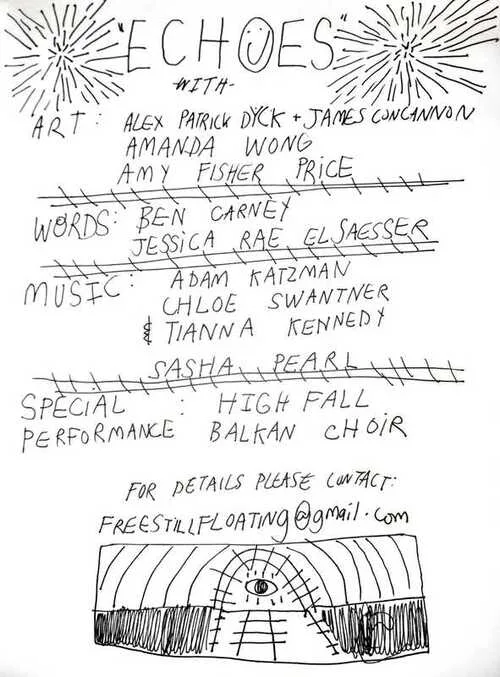 "ECHOES"
WITH-
ART: ALEX PATRICK DYCK + JAMES CONCANNON
AMANDA WONG
AMY FISHER PRICE
WORDS: BEN CARNEY
JESSICA RAE ELSAESSER
MUSIC: ADAM KATZMAN
CHLOE SWANTNER
& TIANNA KENNEDY
SASHA PEARL
SPECIAL : HIGH FALL
PERFORMANCE BALKAN CHOIR
FOR DETAILS PLEASE CONTACT:
FREESTILLFLOATING@gmail.com